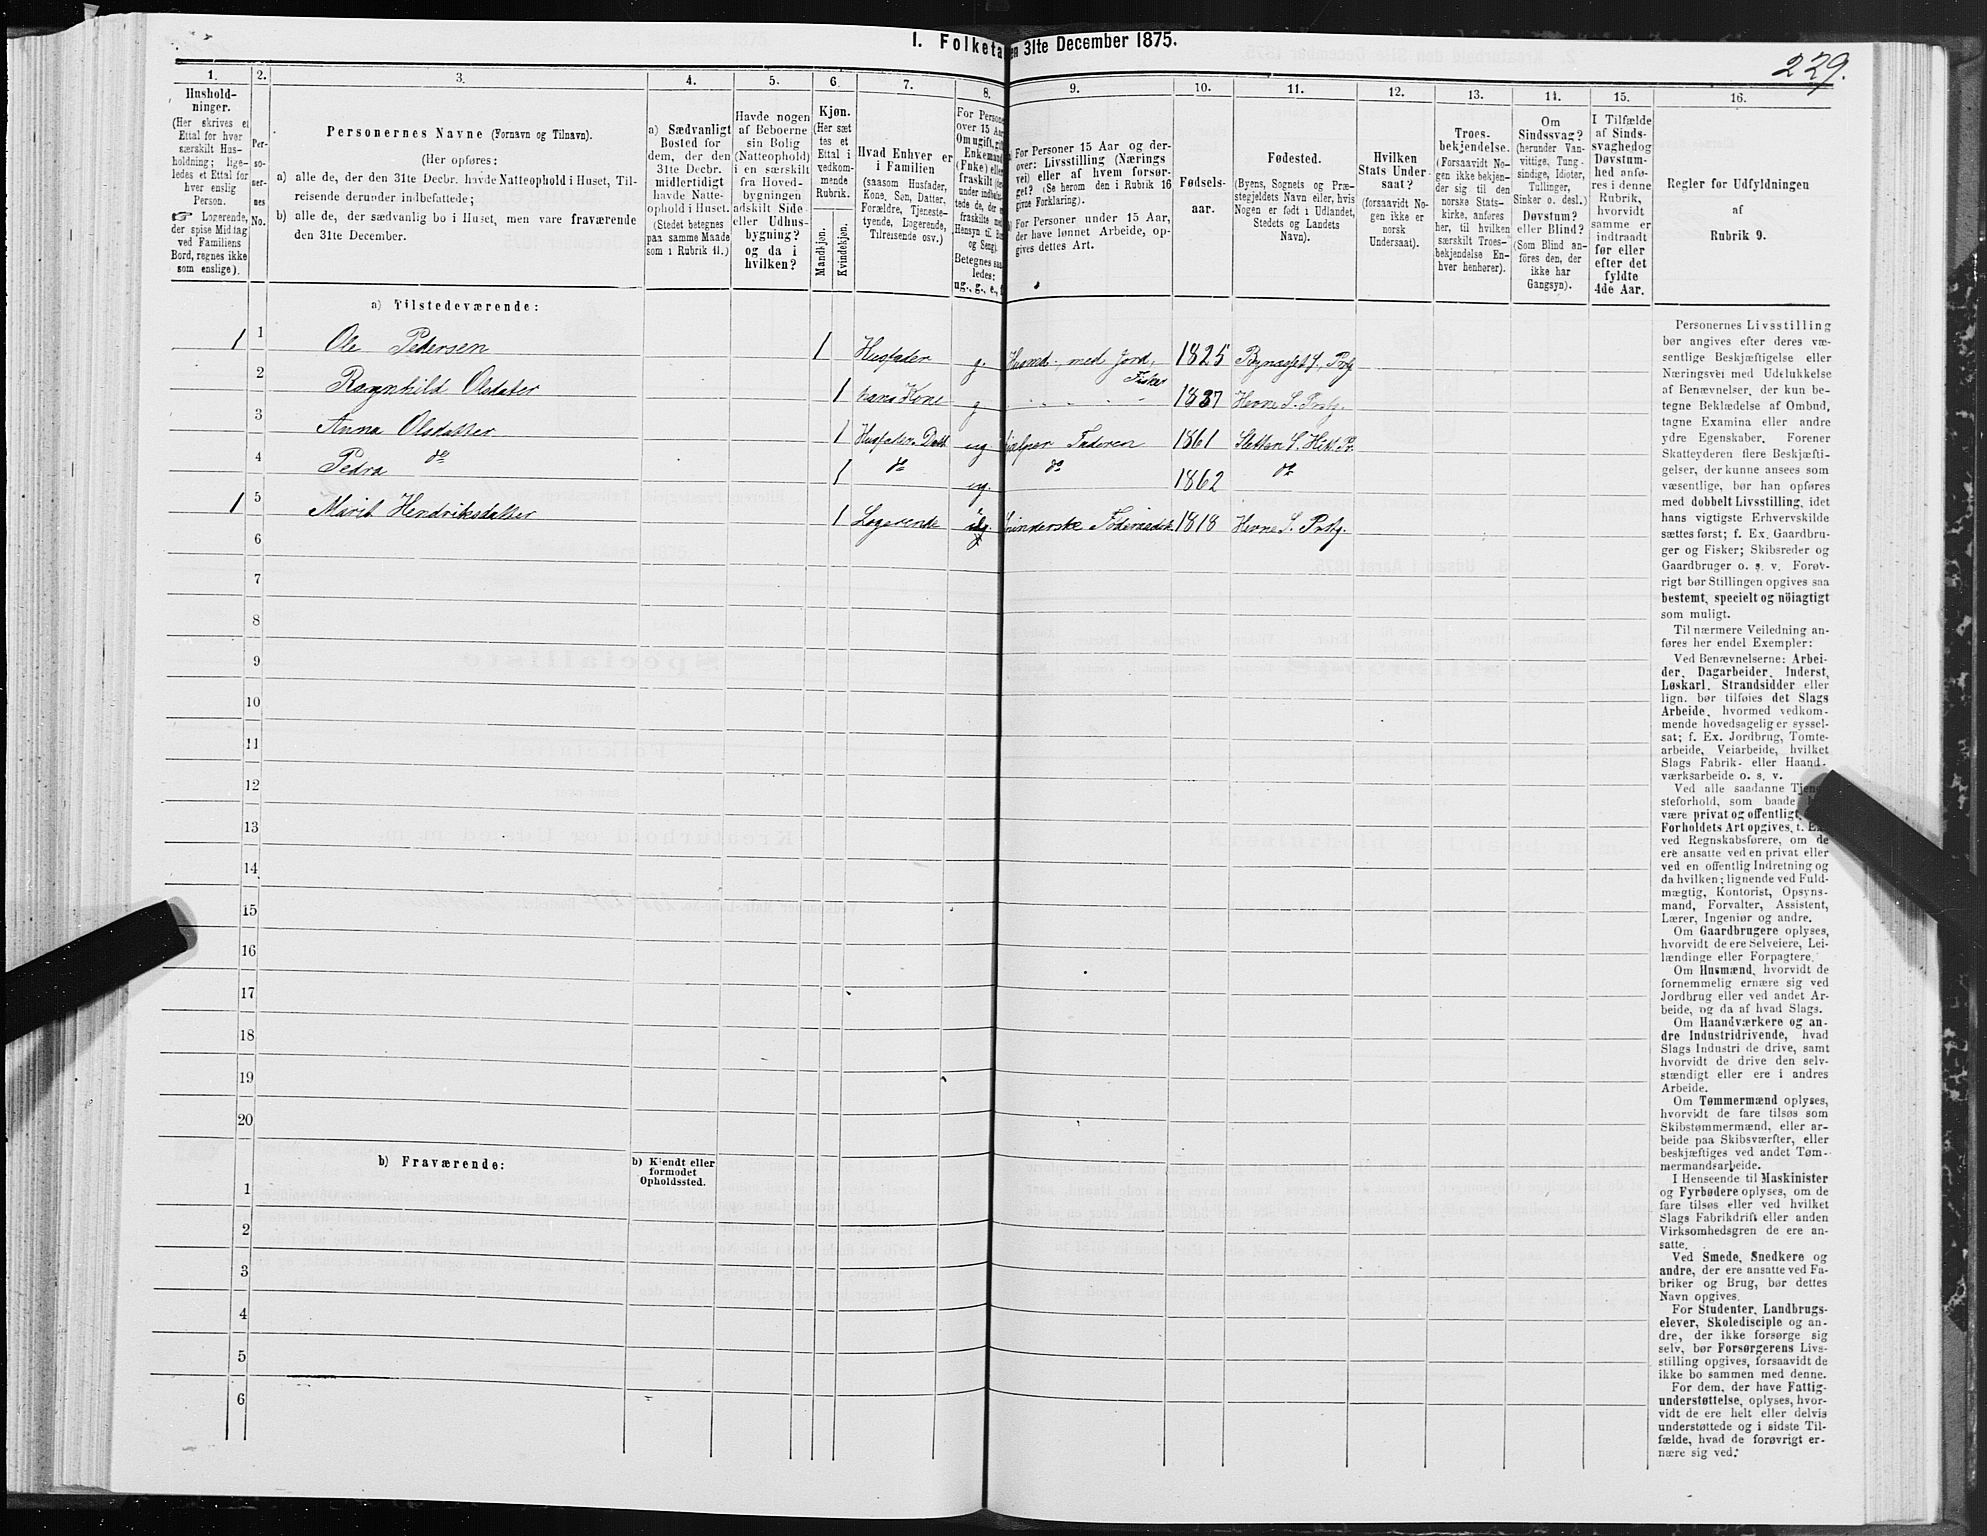 1. Folketa en 31te December 1875.
229.
1.
Hushold-
ninger.
(Her skrives et
Ettal for hver
særskilt Hus-
holdning; lige-
ledes et Ettal for
hver enslig
Person.
☞ Logerende,
der spise Middag
ved Familiens
Bord, regnes ikke
som enslige).
2.
Per-
so-
ner-
nes
No.
3.
Personernes Navne (Fornavn og Tilnavn).
(Her opføres:
a) alle de, der den 31te Decbr. havde Natteophold i Huset, Til-
reisende derunder indbefattede;
b) alle de, der sædvanlig bo i Huset, men vare fraværende
den 31te December.
4.
a) Sædvanligt
Bosted for
dem, der den
31te Decbr.
midlertidigt
havde Natte-
ophold i Huset.
(Stedet betegnes
paa samme Maade
som i Rubrik 11.)
5.
Havde nogen
af Beboerne
sin Bolig
(Natteophold)
i en særskilt
fra Hoved-
bygningen
adskilt Side-
eller Udhus-
bygning?
og da i
hvilken?
6.
Kjøn.
(Her sæt
tes et
Ettal i
vedkom-
mende
Rubrik.
Mandkjøn.
Kvindekjøn.
7.
Hvad Enhver er
i Familien
(saasom Husfader,
Kone, Søn, Datter,
Forældre, Tjeneste-
tyende, Logerende,
Tilreisende osv.)
8.
For Persone
over 15 Aar
Om ugift, gift
Enkemand
(Enke) eller
fraskilt
Betegnes saa-
ledes:
ug., g., e.,
9.
For Personer 15 Aar og der-
over: Livsstilling (Nærings
vei) eller af hvem forsør-
get? (Se herom den i Rubrik 16
givne Forklaring).
For Personer under 15 Aar,
der have lønnet Arbeide, op-
gives dettes Art.
10.
Fødsels-
aar.
11.
Fødested.
(Byens, Sognets og Præ-
stegjeldets Navn eller, hvis
Nogen er født i Udlandet,
Stedets og Landets
Navn).
12.
Hvilken
Stats Under-
saat?
(forsaavidt No-
gen ikke er
norsk
Undersaat).
13.
Troes-
bekjendelse.
(Forsaavidt No-
gen ikke bekjen-
der sig til den
norske Stats-
kirke, anføres
her, til hvilken
særskilt Troes-
bekjendelse En-
hver henhører).
14.
Om
Sindssvag?
(herunder Van-
vittige, Tung-
sindige, Idioter,
Tullinger,
Sinker o. desl.)
Døvstum?
eller Blind?
(Som Blind an-
føres den, der
ikke har
Gangsyn).
15.
I Tilfælde
af Sinds-
svaghed og
Døvstum-
hed anfø-
res i denne
Rubrik,
hvorvidt
samme er
indtraadt
før eller
efter det
fyldte
4de Aar.
16.
Regler for Udfyldningen
af
Rubrik 9.
a) Tilstedeværende:
1 1 Ole Pedersen 1 Husfader g. Husmd. med Jord. Fisker 1825 Bynæsset S., Prstg.
2 Ragnhild Olsdater 1 hans Kone g 1837 Hevne S. Prstg.
3 Anna Olsdatter 1 Husfaders Datt ug hjælper Faderen 1861 Sletten S. Hit. Pr.
4 Pedra do 1 do ug. do 1862 do
1 5 Marit Hendriksdatter 1 Logerende 1818 Hevne S. Prstg.
6
7
8
9
10
11
12
13
14
15
16
17
18
19
20
b) Fraværende:
b) Kjendt eller
formodet
Opholdssted.
1
2
3
4
5
6
Personernes Livsstilling
bør angives efter deres væ-
sentlige Beskjæftigelse eller
Næringsvei med Udelukkelse
af Benævnelser, der kun be-
tegne Beklædelse af Ombud,
tagne Examina eller andre
ydre Egenskaber. Forener
Skatteyderen flere Beskjæfti-
gelser, der kunne ansees som
væsentlige, bør han opføres
med dobbelt Livsstilling, idet
hans vigtigste Erhvervskilde
sættes først; f. Ex. Gaardbru-
ger og Fisker; Skibsreder og
Gaardbruger o. s. v. Forøv-
rigt bør Stillingen opgives saa
bestemt, specielt og nöiagtigt
som muligt.
Til nærmere Veiledning an-
føres her endel Exempler:
Ved Benævnelserne: Arbei-
der, Dagarbeider, Inderst,
Løskarl, Strandsidder eller
lign. bør tilføies det Slags
Arbeide, hvormed vedkom-
mende hovedsagelig er syssel-
sat; f. Ex. Jordbrug, Tomte-
arbeide, Veiarbeide, hvilket
Slags Fabrik- eller Haand-
værksarbeide o. s. v.
Ved alle saadanne Tjene-
steforhold, som baade
være privat og offentligt,
Forholdets Art opgives, f. Ex.
ved Regnskabsførere, om de
ere ansatte ved en privat eller
ved en offentlig Indretning og
da hvilken; lignende ved Fuld-
mægtig, Kontorist, Opsyns-
mand, Forvalter, Assistent,
Lærer, Ingeniør og andre.
Om Gaardbrugere oplyses,
hvorvidt de ere Selveiere, Lei-
lændinge eller Forpagtere.
Om Husmænd, hvorvidt de
fornemmelig ernære sig ved
Jordbrug eller ved andet Ar-
beide, og da af hvad Slags.
Om Haandværkere og an-
dre Industridrivende, hvad
Slags Industri de drive, samt
hvorvidt de drive den selv-
stændigt eller ere i andres
Arbeide.
Om Tømmermænd oplyses,
hvorvidt de fare tilsøs som
Skibstømmermænd, eller ar-
beide paa Skibsværfter, eller
beskjæftiges ved andet Tøm-
mermandsarbeide.
I Henseende til Maskinister
og Fyrbødere oplyses, om de
fare tilsøs eller ved hvilket
Slags Fabrikdrift eller anden
Virksomhedsgren de ere an-
satte.
Ved Smede, Snedkere og
andre, der ere ansatte ved Fa-
briker og Brug, bør dettes
Navn opgives.
For Studenter, Landbrugs-
elever, Skoledisciple og an-
dre, der ikke forsørge sig
selv, bør Forsørgerens Livs-
stilling opgives, forsaavidt de
ikke bo sammen med denne.
For dem, der have Fattig-
understøttelse, oplyses, hvor-
vidt de ere helt eller delvis
understøttede og i sidste Til-
fælde, hvad de forøvrigt er-
nære sig ved.